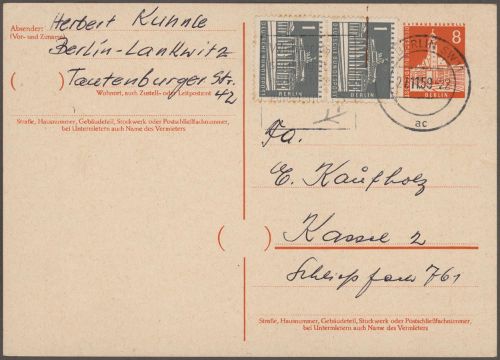 Absender:
(Vor- und Zuname)
Herbert Kuhnle
Berlin-Lankwitz
Tautenburger Str.
42
Wohnort, auch Zustell- oder Leitpostamt
Straße, Hausnummer, Gebäudeteil, Stockwerk oder Postschließfachnummer,
bei Untermietern auch Name des Vermieters
DEUTSCHE BUNDESPOST
1
BERLIN
DEUTSCHE BUNDESPOST
1
BERLIN
8
BERLIN
BERLIN SW
27.11.59-22
ac
Fa.
E. Kaufholz
Kassel 2
Schließfach 761
Straße, Hausnummer, Gebäudeteil, Stockwerk oder Postschließfachnummer,
bei Untermietern auch Name des Vermieters